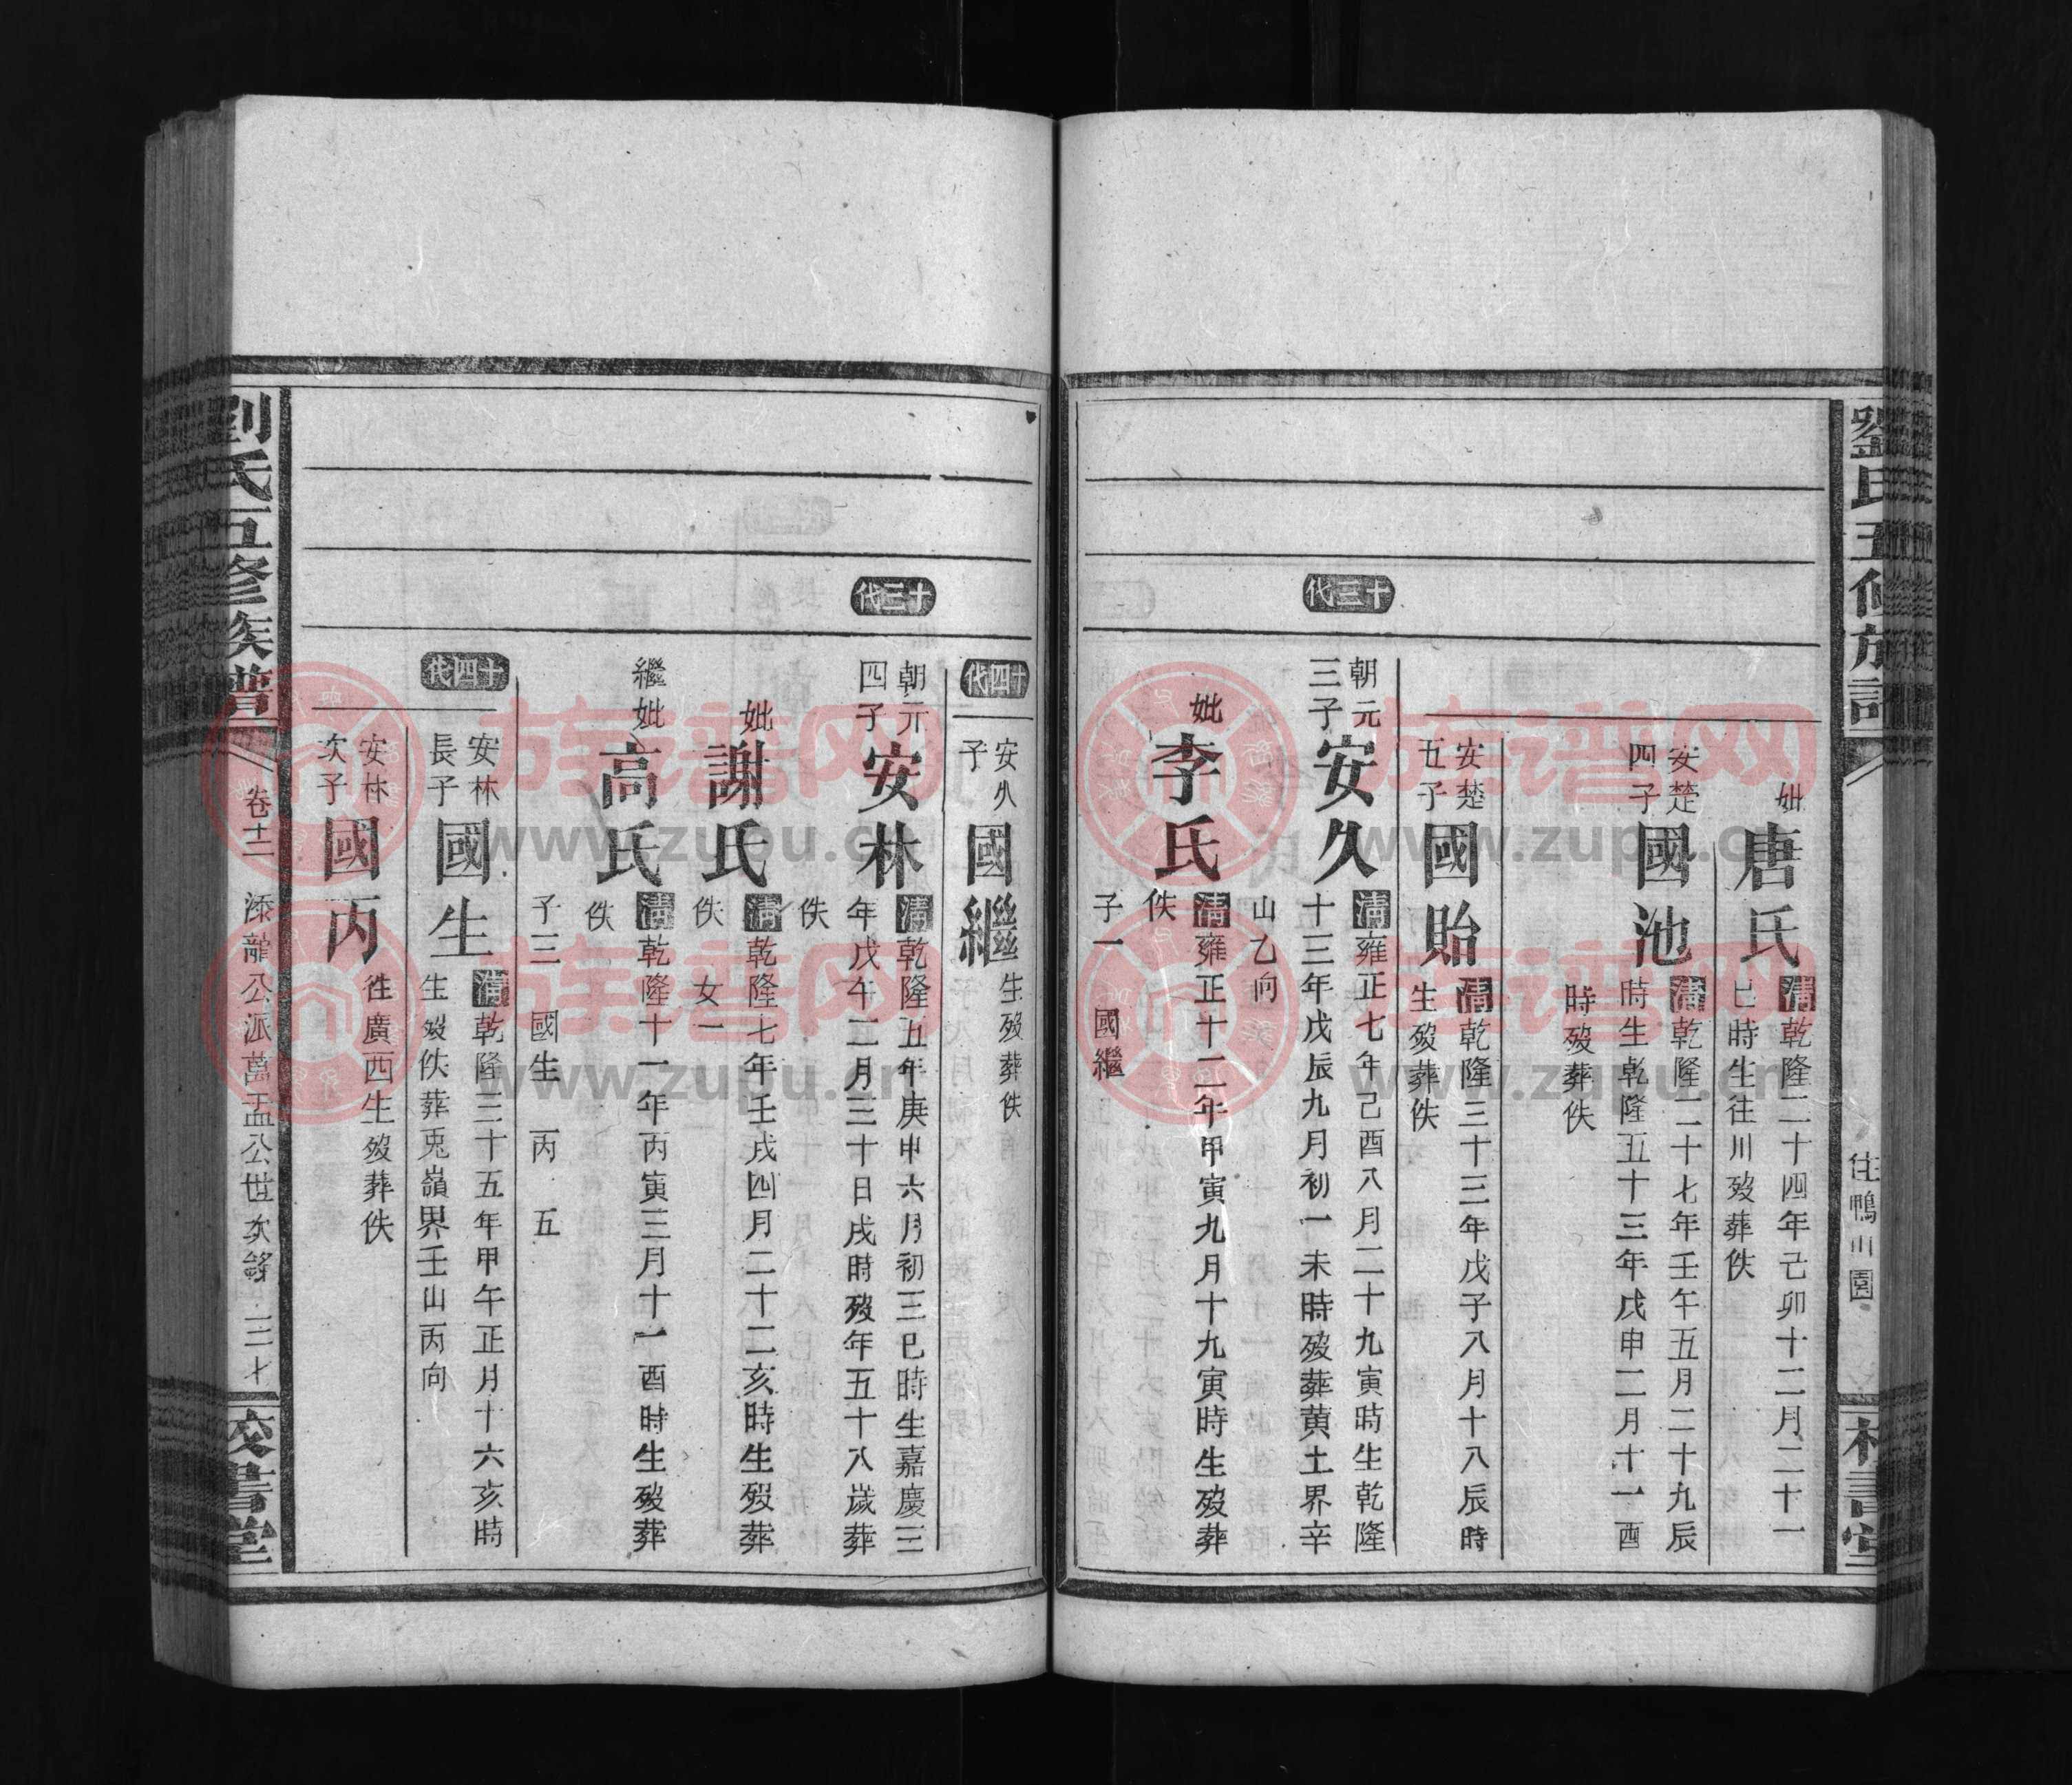 劉氏五修族譜
住鴨山園
校書堂
妣
唐氏
清乾隆二十四年己卯十二月二十一
巳時生往川歿葬佚
安楚
四子
國池
清乾隆二十七年壬午五月二十九辰
時生乾隆五十三年戊申二月十一酉
時歿葬佚
安楚
五子
國貽
清乾隆三十三年戊子八月十八辰時
生歿葬佚
十三代
朝元
三子
安久
清雍正七年己酉八月二十九寅時生乾隆
十三年戊辰九月初一未時歿葬黄土界辛
山乙向
妣
李氏
清雍正十二年甲寅九月十九寅時生歿葬
佚
子一 國繼
十四代
安久
子
國繼
生歿葬佚
十三代
朝元
四子
安林
清乾隆五年庚申六月初三巳時生嘉慶三
年戊午二月三十日戌時歿年五十八歲葬
佚
妣
謝氏
清乾隆七年壬戌四月二十二亥時生歿葬
佚 女一
繼妣
高氏
清乾隆十一年丙寅三月十一酉時生歿葬
佚
子三 國生 丙 五
十四代
安林
長子
國生
清乾隆三十五年甲午正月十六亥時
生歿佚葬兎嶺界壬山丙向
安林
次子
國丙
徃廣西生歿葬佚
劉氏五修族譜
卷十二
添龍公派萬孟公世次錄
三十七
校書堂
族谱网
www.zupu.cn
族谱网
www.zupu.cn
族谱网
www.zupu.cn
族谱网
www.zupu.cn